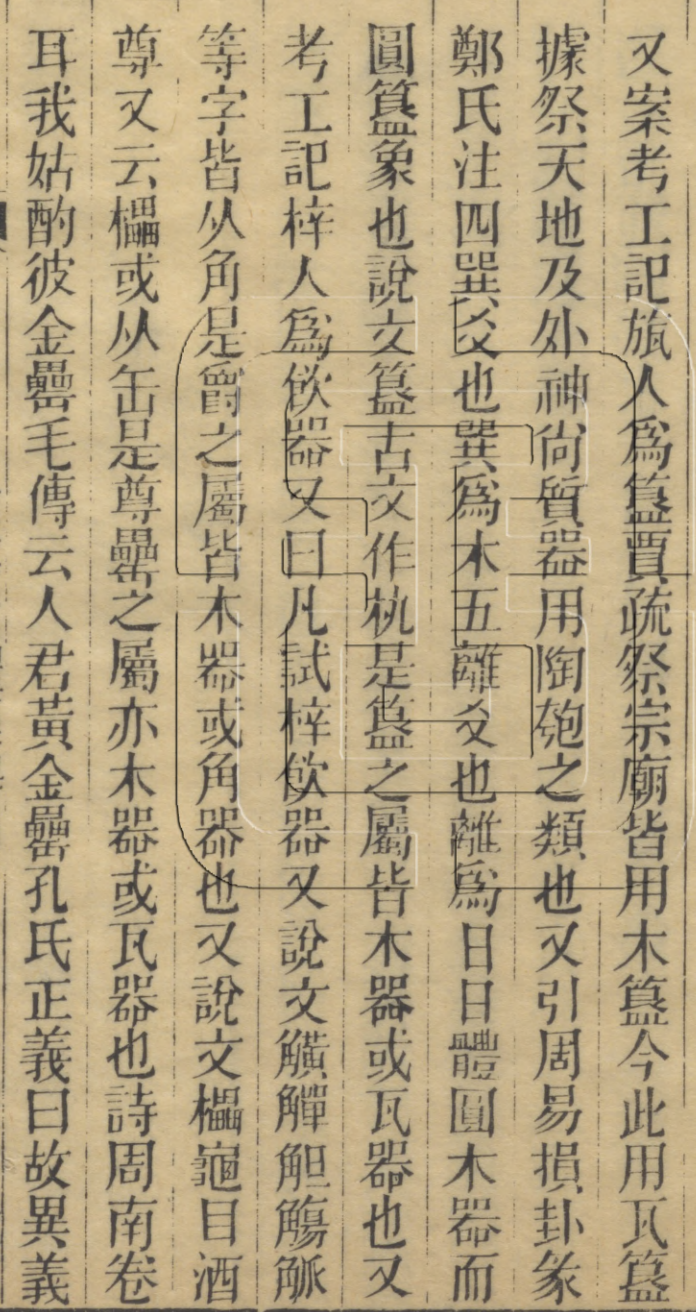 又案考工記旊人爲簋賈疏祭宗廟皆用木簋今此用瓦簋
據祭天地及外神尙質器用陶匏之類也又引周易損卦彖
鄭氏注四巽爻也巽爲木五離爻也離爲日日體圓木器而
圓簋象也說文簋古文作朹是簋之屬皆木器或瓦器也又
考工記梓人爲飮器又曰凡試梓飮器又說文觵觶觛觴觚
等字皆从角是爵之屬皆木器或角器也又說文櫑龜目酒
尊又云櫑或从缶是尊罍之屬亦木器或瓦器也詩周南卷
耳我姑酌彼金罍毛傳云人君黃金罍孔氏正義曰故異義